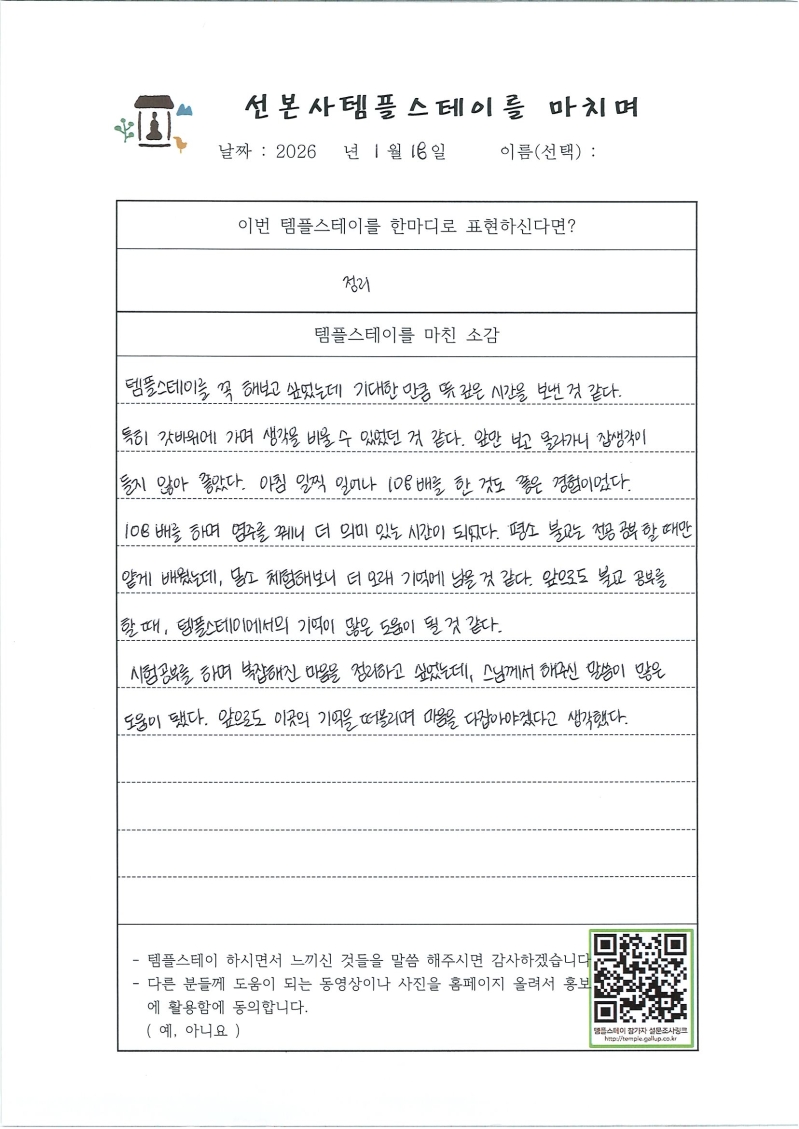 선본사템플스테이를 마치며
날짜 : 2026 년 1 월 18 일 이름(선택) :
이번 템플스테이를 한마디로 표현하신다면?
정리
템플스테이를 마친 소감
템플스테이를 꼭 해보고 싶었는데 기대한 만큼 뜻 깊은 시간을 보낸 것 같다.
특히 갓바위에 가며 생각을 비울 수 있었던 것 같다. 앞만 보고 올라가니 잡생각이
들지 않아 좋았다. 아침 일찍 일어나 108배를 한 것도 좋은 경험이었다.
108배를 하며 염주를 꿰니 더 의미 있는 시간이 되었다. 평소 불교는 전공 공부 할 때만
얕게 배웠는데, 몸소 체험해보니 더 오래 기억에 남을 것 같다. 앞으로도 불교 공부를
할 때, 템플스테이에서의 기억이 많은 도움이 될 것 같다.
시험공부를 하며 복잡해진 마음을 정리하고 싶었는데, 스님께서 해주신 말씀이 많은
도움이 됐다. 앞으로도 이곳의 기억을 떠올리며 마음을 다잡아야겠다고 생각했다.
- 템플스테이 하시면서 느끼신 것들을 말씀 해주시면 감사하겠습니다
- 다른 분들께 도움이 되는 동영상이나 사진을 홈페이지 올려서 홍보
에 활용함에 동의합니다.
( 예, 아니요 )
템플스테이 참가자 설문조사링크
http://temple.gallup.co.kr